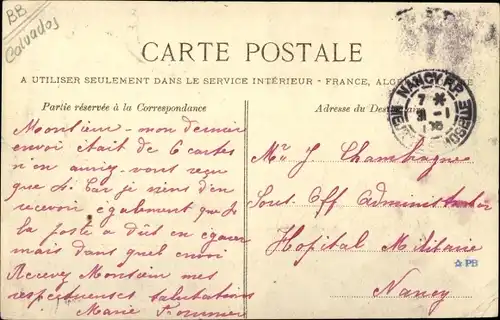 BB
Calvados
CARTE POSTALE
A UTILISER SEULEMENT DANS LE SERVICE INTÉRIEUR - FRANCE, ALG
Partie réservée à la Correspondance
Adresse du Dest
NANCY R.P.
7
31 - 1
MEURTHE MOSELLE
Monsieur - mon dernier
envoi était de 6 cartes
n'en auriez-vous reçu
que 4. Car je viens d'en
recevoir également que 4
la poste a dût en égarer
mais dans quel envoi
Recevez Monsieur mes
respectueuses salutations
Marie
Mr J Chambogne
Sous Off Administrateur
Hopital Militaire
Nancy
☆ PB